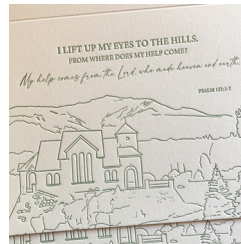 I LIFT UP MY EYES TO THE HILLS.
FROM WHERE DOES MY HELP COME?
My help comes from the Lord, who made heaven and earth.
PSALM 121:1-2